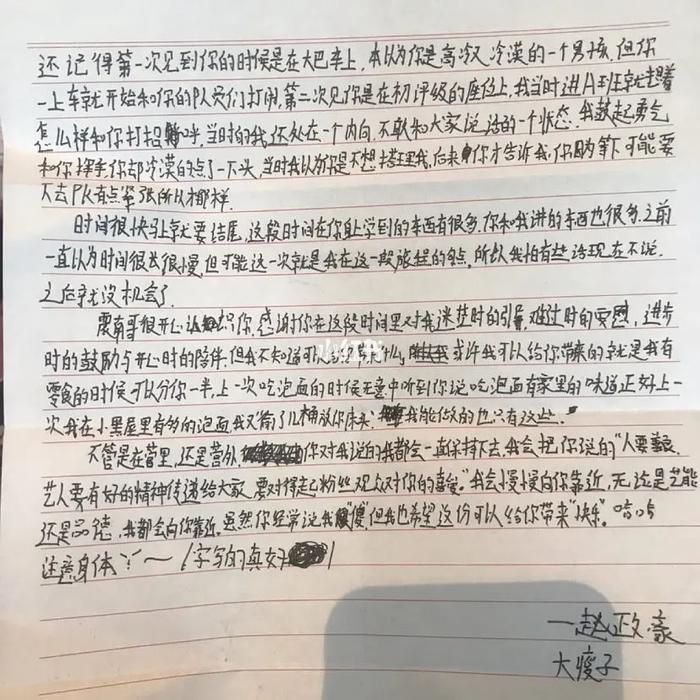 还记得第一次见到你的时候是在大巴车上,本以为你是高冷又冷漠的一个男孩,但你
一上车就开始和你的队友们打闹,第二次见你是在初评级的座位上,我当时进A到后就想着
怎么样和你打招呼,当时的我还处在一个内向,不敢和大家说话的一个状态,我鼓起勇气
和你挥手你却冷漠的点了一下头,当时我以为你是不想搭理我,后来你才告诉我,你因为等下可能要
去PK有点紧张所以才那样.
时间很快马上就要结尾,这段时间在你身上学到的东西有很多,你和我讲的东西也很多,之前
一直以为时间很长很慢,但可能这一次就是我在这一段旅程的终点,所以我怕有些话现在不说
之后就没机会了
哥很开心认识你,感谢你在这段时间里对我迷茫时的引导,难过时的安慰,进步
时的鼓励与开心时的陪伴,但我不知道可以给你什么,或许我可以给你带来的就是我有
零食的时候可以分你一半,上一次吃泡面的时候无意中听到你说吃泡面有家里的味道正好上一
次我在小黑屋里有多的泡面我又偷了几桶放你床头,我能做的也只有这些."
不管是在营里,还是营外,你对我说的我都会一直保持下去,我会把你说的"人要善良.
艺人要有好的精神传递给大家,要对得起粉丝观众对你的喜爱"我会慢慢向你靠近,无论是艺能
还是品德,我都会向你靠近.虽然你经常说我"傻",但我也希望这份可以给你带来"快乐".哈哈
注意身体丫~(字写的真好)
一赵政豪
大瘦子
小红书